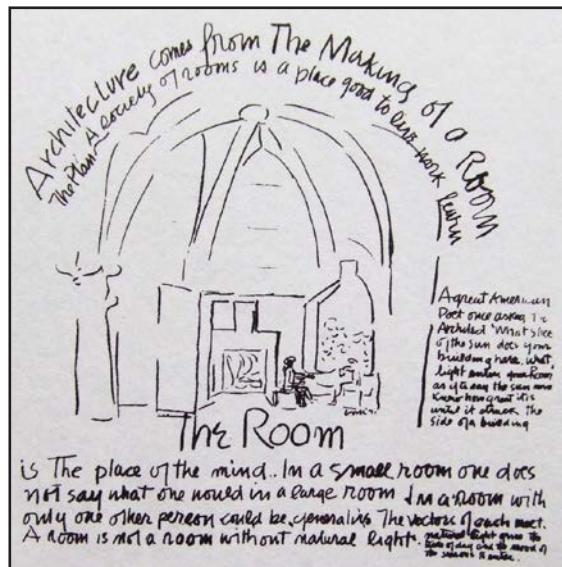 Architecture comes from The Making of a Room
The Plan A society of rooms is a place good to live work learn
A great American
Poet once asked The
Architect 'What slice
of the sun does your
building have. What
light enters your Room
as if to say the sun never
knew how great it is
until it struck the
side of a building
The Room
is The place of the mind. In a small room one does
not say what one would in a large room In a room with
only one other person could be generative The vectors of each meet.
A room is not a room without natural light.
natural light gives the
time of day and the mood of
the seasons to enter